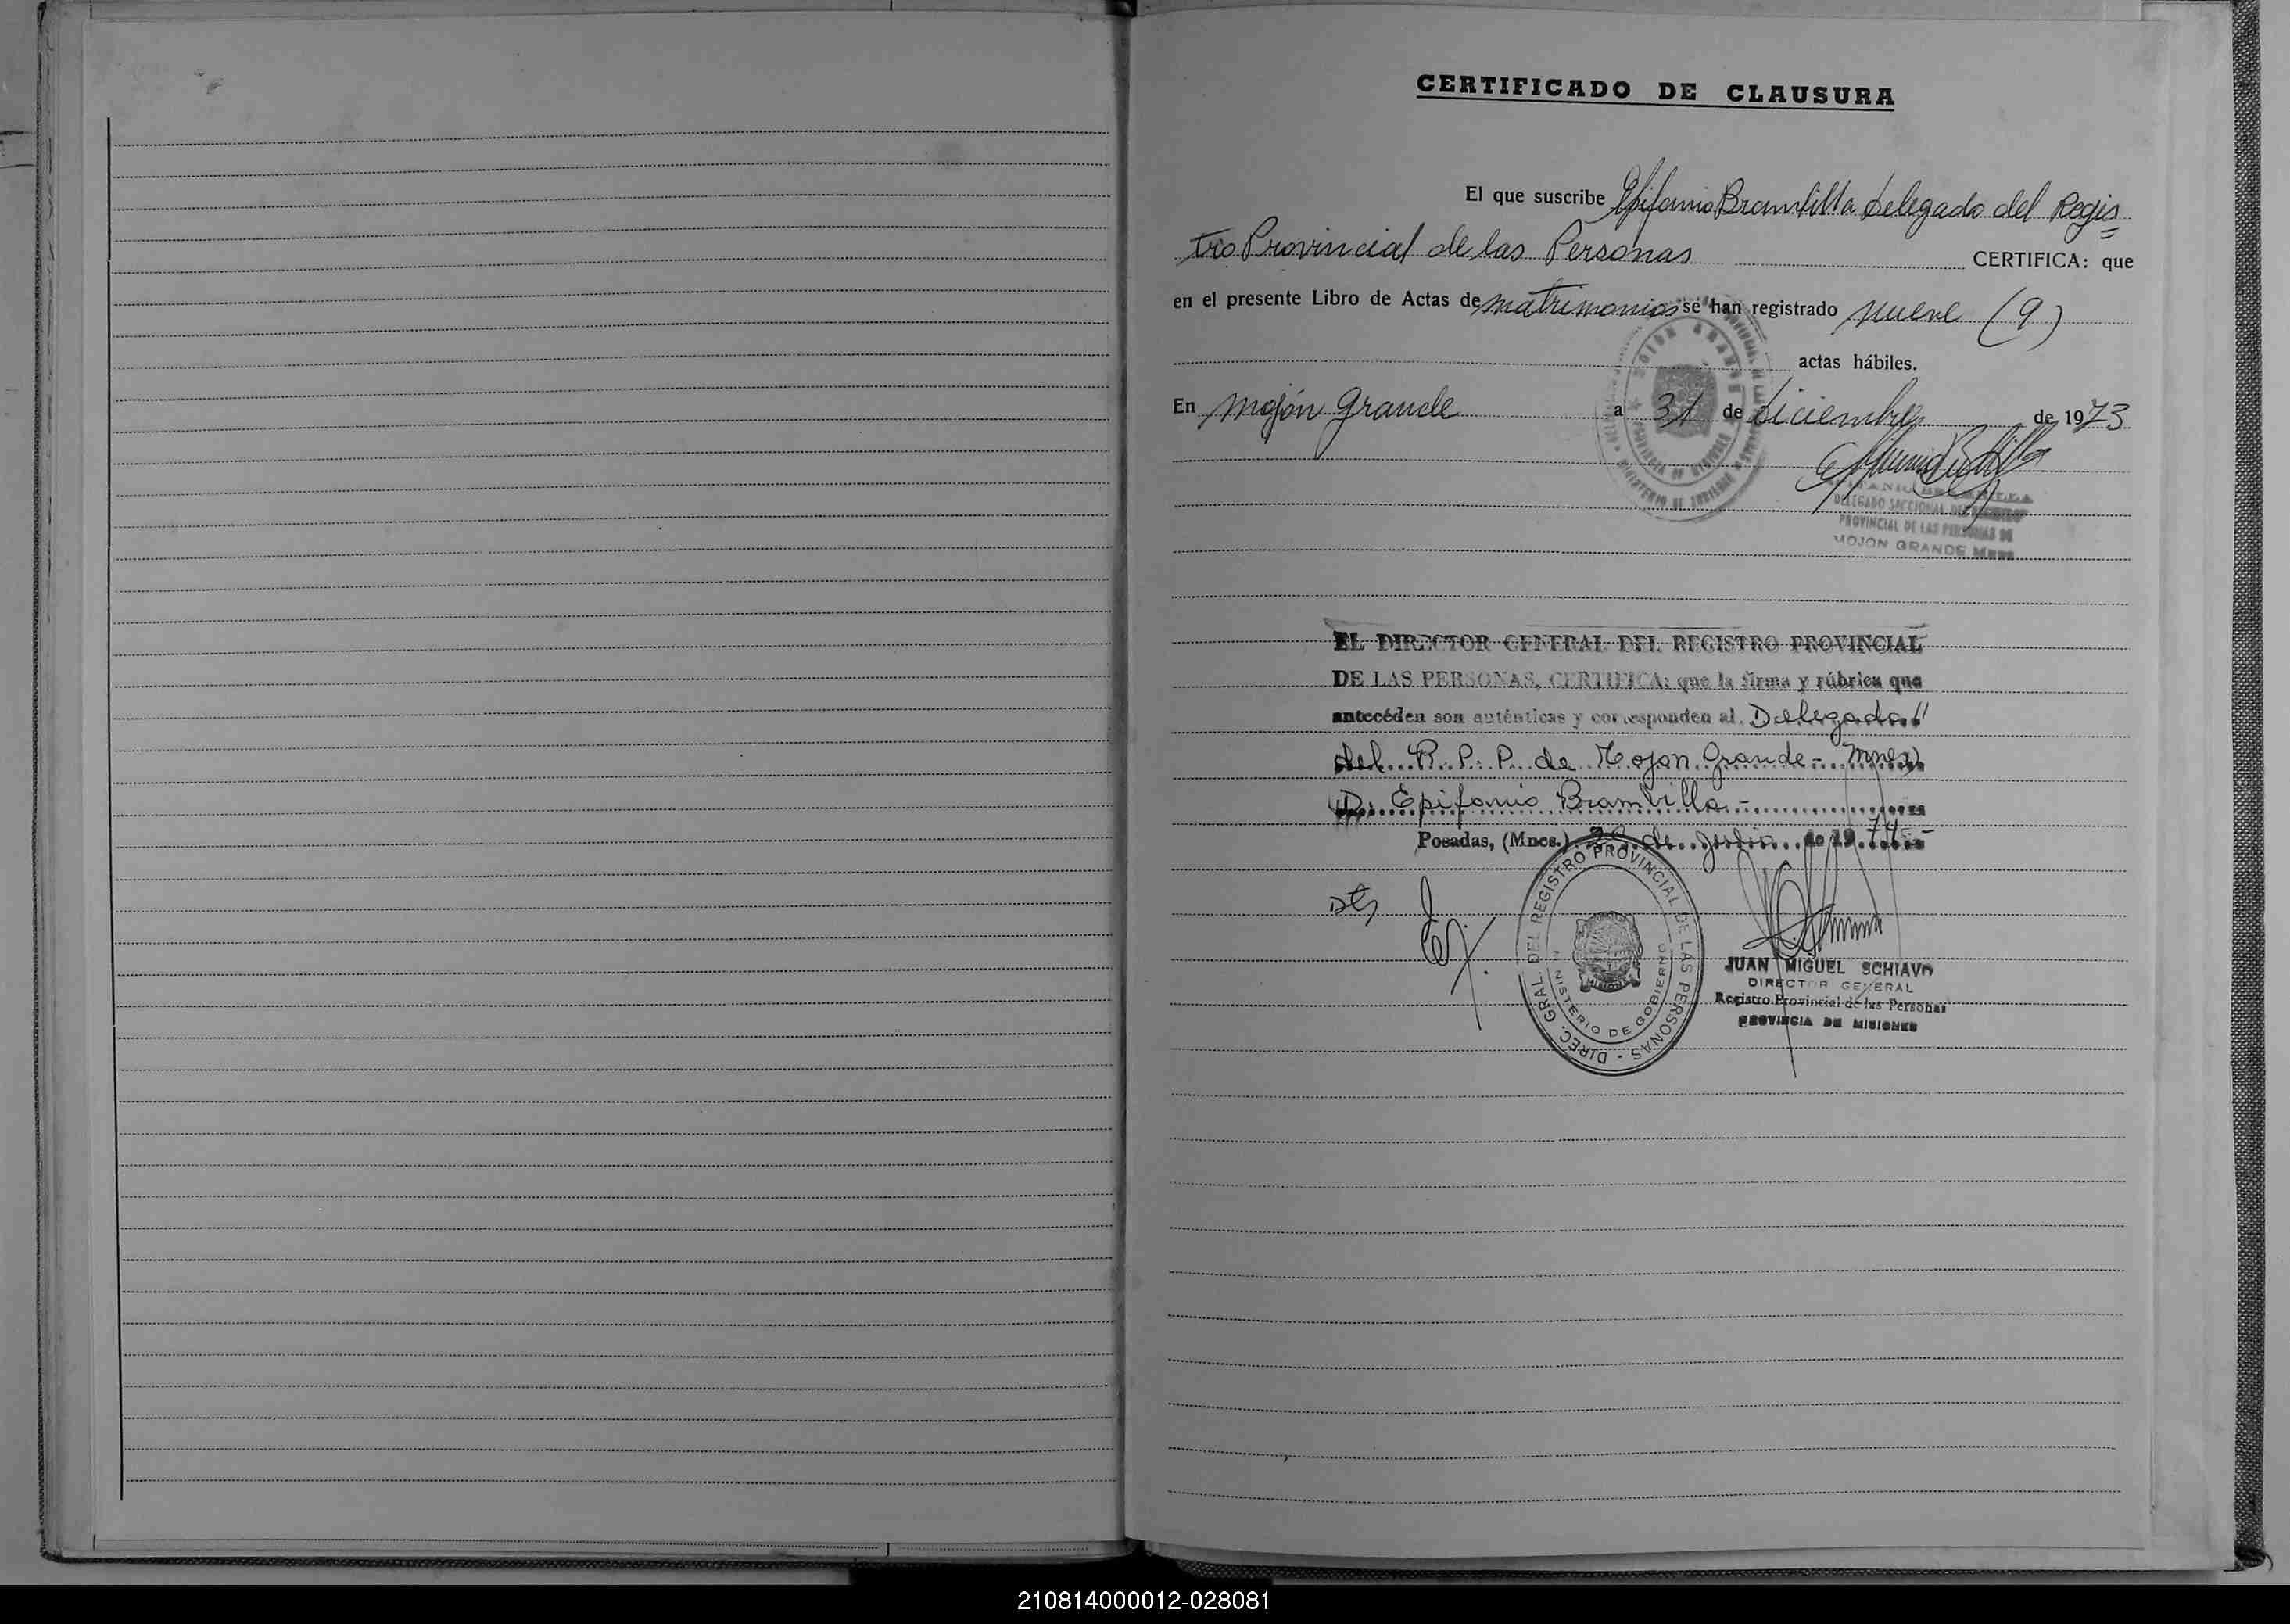 CERTIFICADO DE CLAUSURA
El que suscribe Epifanio Brambilla delegado del Regis
tro Provincial de las Personas CERTIFICA: que
en el presente Libro de Actas de matrimonios se han registrado nueve (9)
actas hábiles.
En Mojón Grande a 31 de diciembre de 1973
DELEGADO SECCIONAL DEL
PROVINCIAL DE LAS PERSONAS DE
MOJON GRANDE Mnes
EL DIRECTOR GENERAL DEL REGISTRO PROVINCIAL
DE LAS PERSONAS, CERTIFICA: que la firma y rúbrica que
antecéden son auténticas y corresponden al Delegado
del R. P. P. de Mojon Grande - Mnes
D. Epifanio Brambilla -
Posadas, (Mnes.) de Julio de 1974.-
DIREC. GRAL. DEL REGISTRO PROVINCIAL DE LAS PERSONAS -
MINISTERIO DE GOBIERNO
MISIONES
JUAN MIGUEL SCHIAVO
DIRECTOR GENERAL
Registro Provincial de las Personas
PROVINCIA DE MISIONES
210814000012-028081